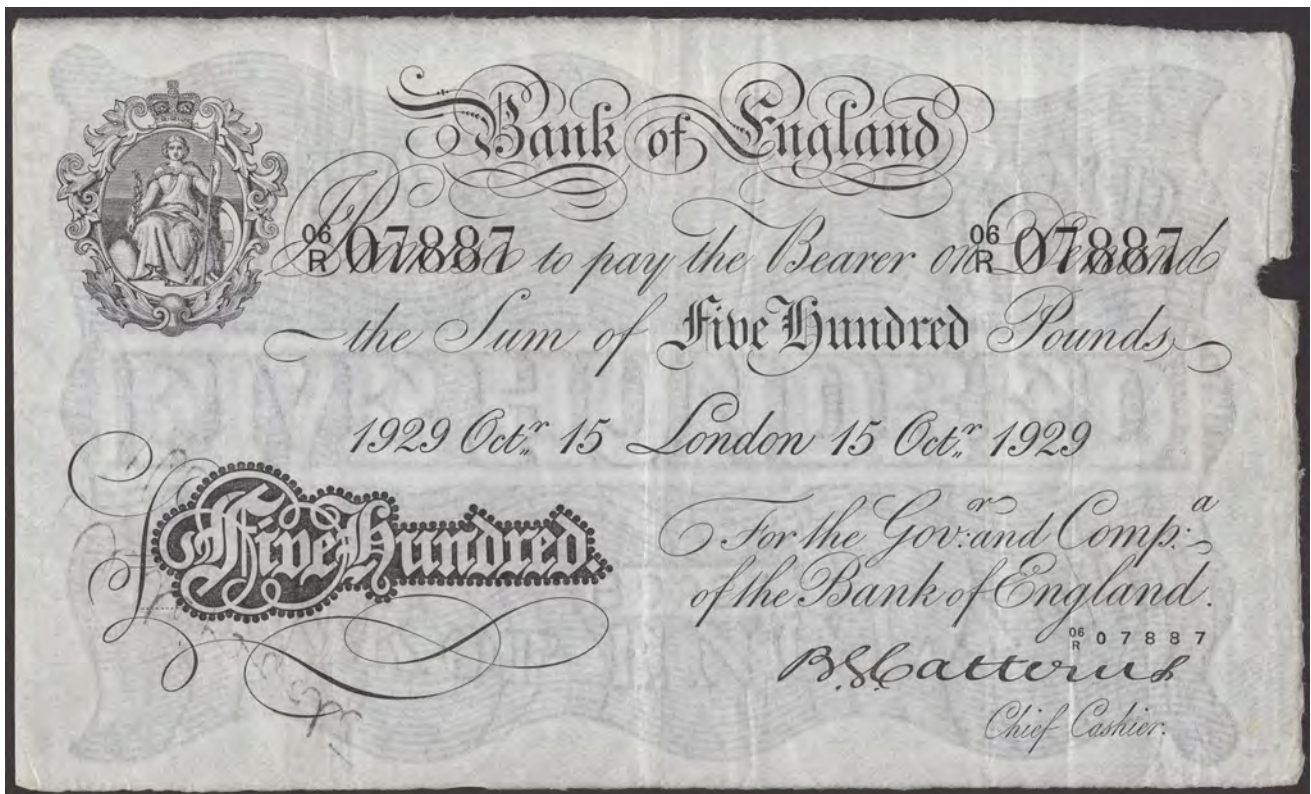 Bank of England
06 R 07887 to pay the Bearer on 06 R 07887
the Sum of Five Hundred Pounds
1929 Octr. 15 London 15 Octr. 1929
£ Five Hundred
For the Govr: and Compa:
of the Bank of England.
06 R 07887
B G Catterns
Chief Cashier.